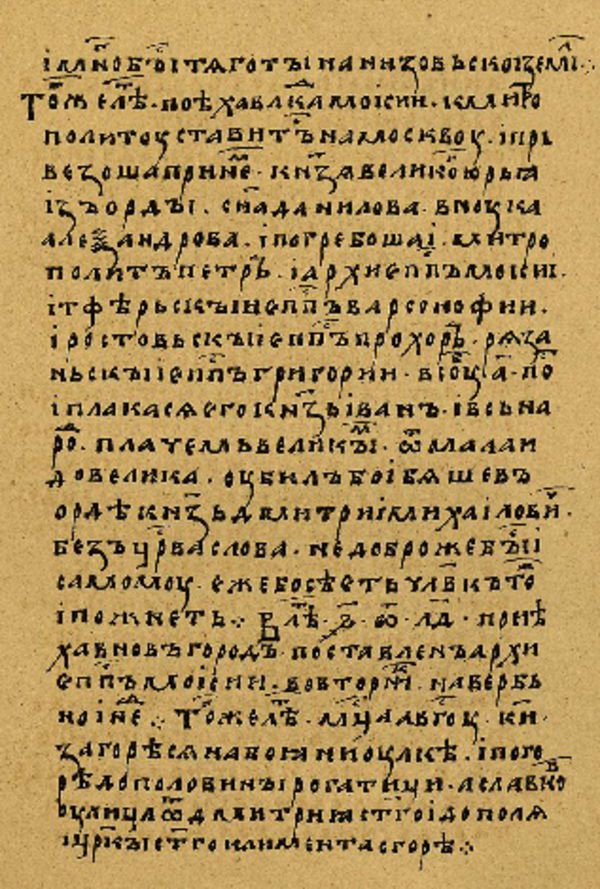 іmмнобъ і тѧготꙑ і на низовьскоі земли·
Томже лѣⷮ· поѣха влⷣка моісии· к митро
политоу ставитъсѧ на москвоу· і при
везоша при неⷨ· кнѧзѧ великоⷢ юрьꙗ
ізъ ордꙑ· сн҃а данилова· вноука
александрова· і погребоша і· митро
политъ петръ· і архиеппъ⁠ моісии·
і тфѣрьскꙑи еппъ варсонофии·
і ростовьскꙑі еппъ прохоръ· рѧза
ньскꙑі еппъ григории· в іⷭ҇ ѿца· поⷭ
і плакасѧ его кнѧзь іванъ· і всь на
роⷣ· плачемь великꙑⷨ· ѿ мала и
до велика· оубилъ бо і бѧше въ
ордѣ кнѧзь дмитриі михаіловиⷱ·
без цр҃ва слова· не добро же бꙑⷭ і
самомоу· еже бо сѣеть члв҃къ тоⷤ
і пожнеть ⁘ В лѣⷮ· ҂ѕ҃· ѿ· лд҃· приѣ
ха в новъгородъ· поставленъ архи
еппъ моісии· во вторниⷦ· на вербь
ноі неⷣ ⁘ Томже лѣⷮ· мⷭ҇ца авгоуⷭ· к҃и·
загорѣсѧ на боꙗни оулкѣ· і пого
рѣ до половинꙑ рогатици· а славко
оулица ѿ дмитриꙗ ст҃го і до полѧ
і цр҃кꙑ ст҃го климента сгорѣ ⁘